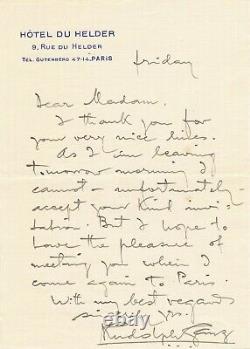 HÔTEL DU HELDER
9, RUE DU HELDER
TEL. GUTENBERG 47-14. PARIS
Friday
Dear Madam.
I thank you for
your very nice lines.
As I am leaving
tomorrow morning I
cannot - unfortunately -
accept your kind invi-
tation. But I hope to
have the pleasure of
meeting you when I
come again to Paris.
With my best regards
sincerely yrs.
Rudolph Ganz